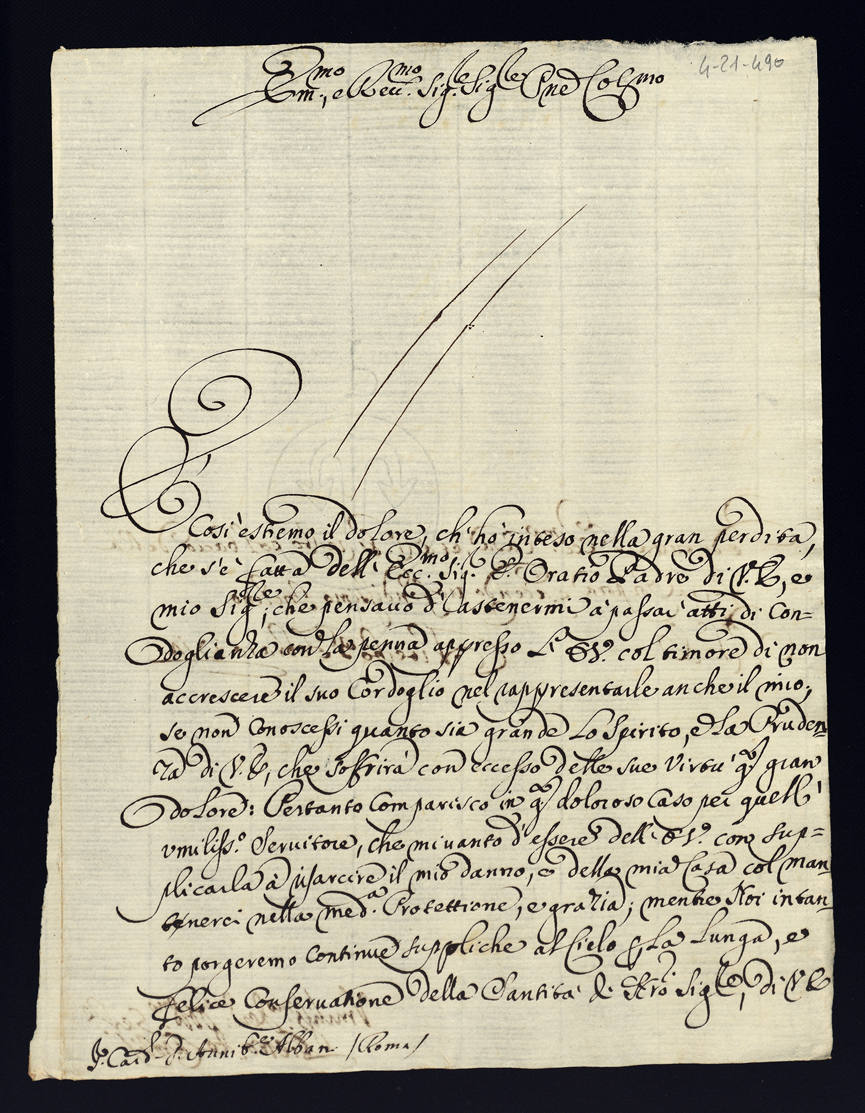 Em.mo, e Reu.mo Sig.re Sig.re Pne Col.mo
4-21-490
È Così estremo il dolore, ch'hò inteso nella gran perdita,
che s'è fatta dell'Ecc.mo Sig. D. Oratio Padre di V.E., e
mio Sig.re, che pensavo d'astenermi à passar atti di Con=
doglianza con la penna appresso L'E.V. col timore di non
accrescere il suo Cordoglio nel rappresentarle anche il mio;
se non Conoscessi quanto sia grande Lo Spirito, e la Pruden=
za di V.E., che soffrirà con eccesso delle sue Virtù q.to gran
dolore: Pertanto Comparisco in q.to doloroso Caso per quell'
vmiliss.o Seruitore, che mi uanto d'essere dell'E.V. con sup=
plicarla à risarcire il mio danno, e della mia Casa col man=
tenerci nella med.a Protettione, e grazia; mentre Noi intan=
to porgeremo Continue suppliche al Cielo p. La Lunga, e
felice Conseruatione della Santità di N.ro Sig.re, di V.E.
S.r Card. D. Annib.e Alban /Roma/